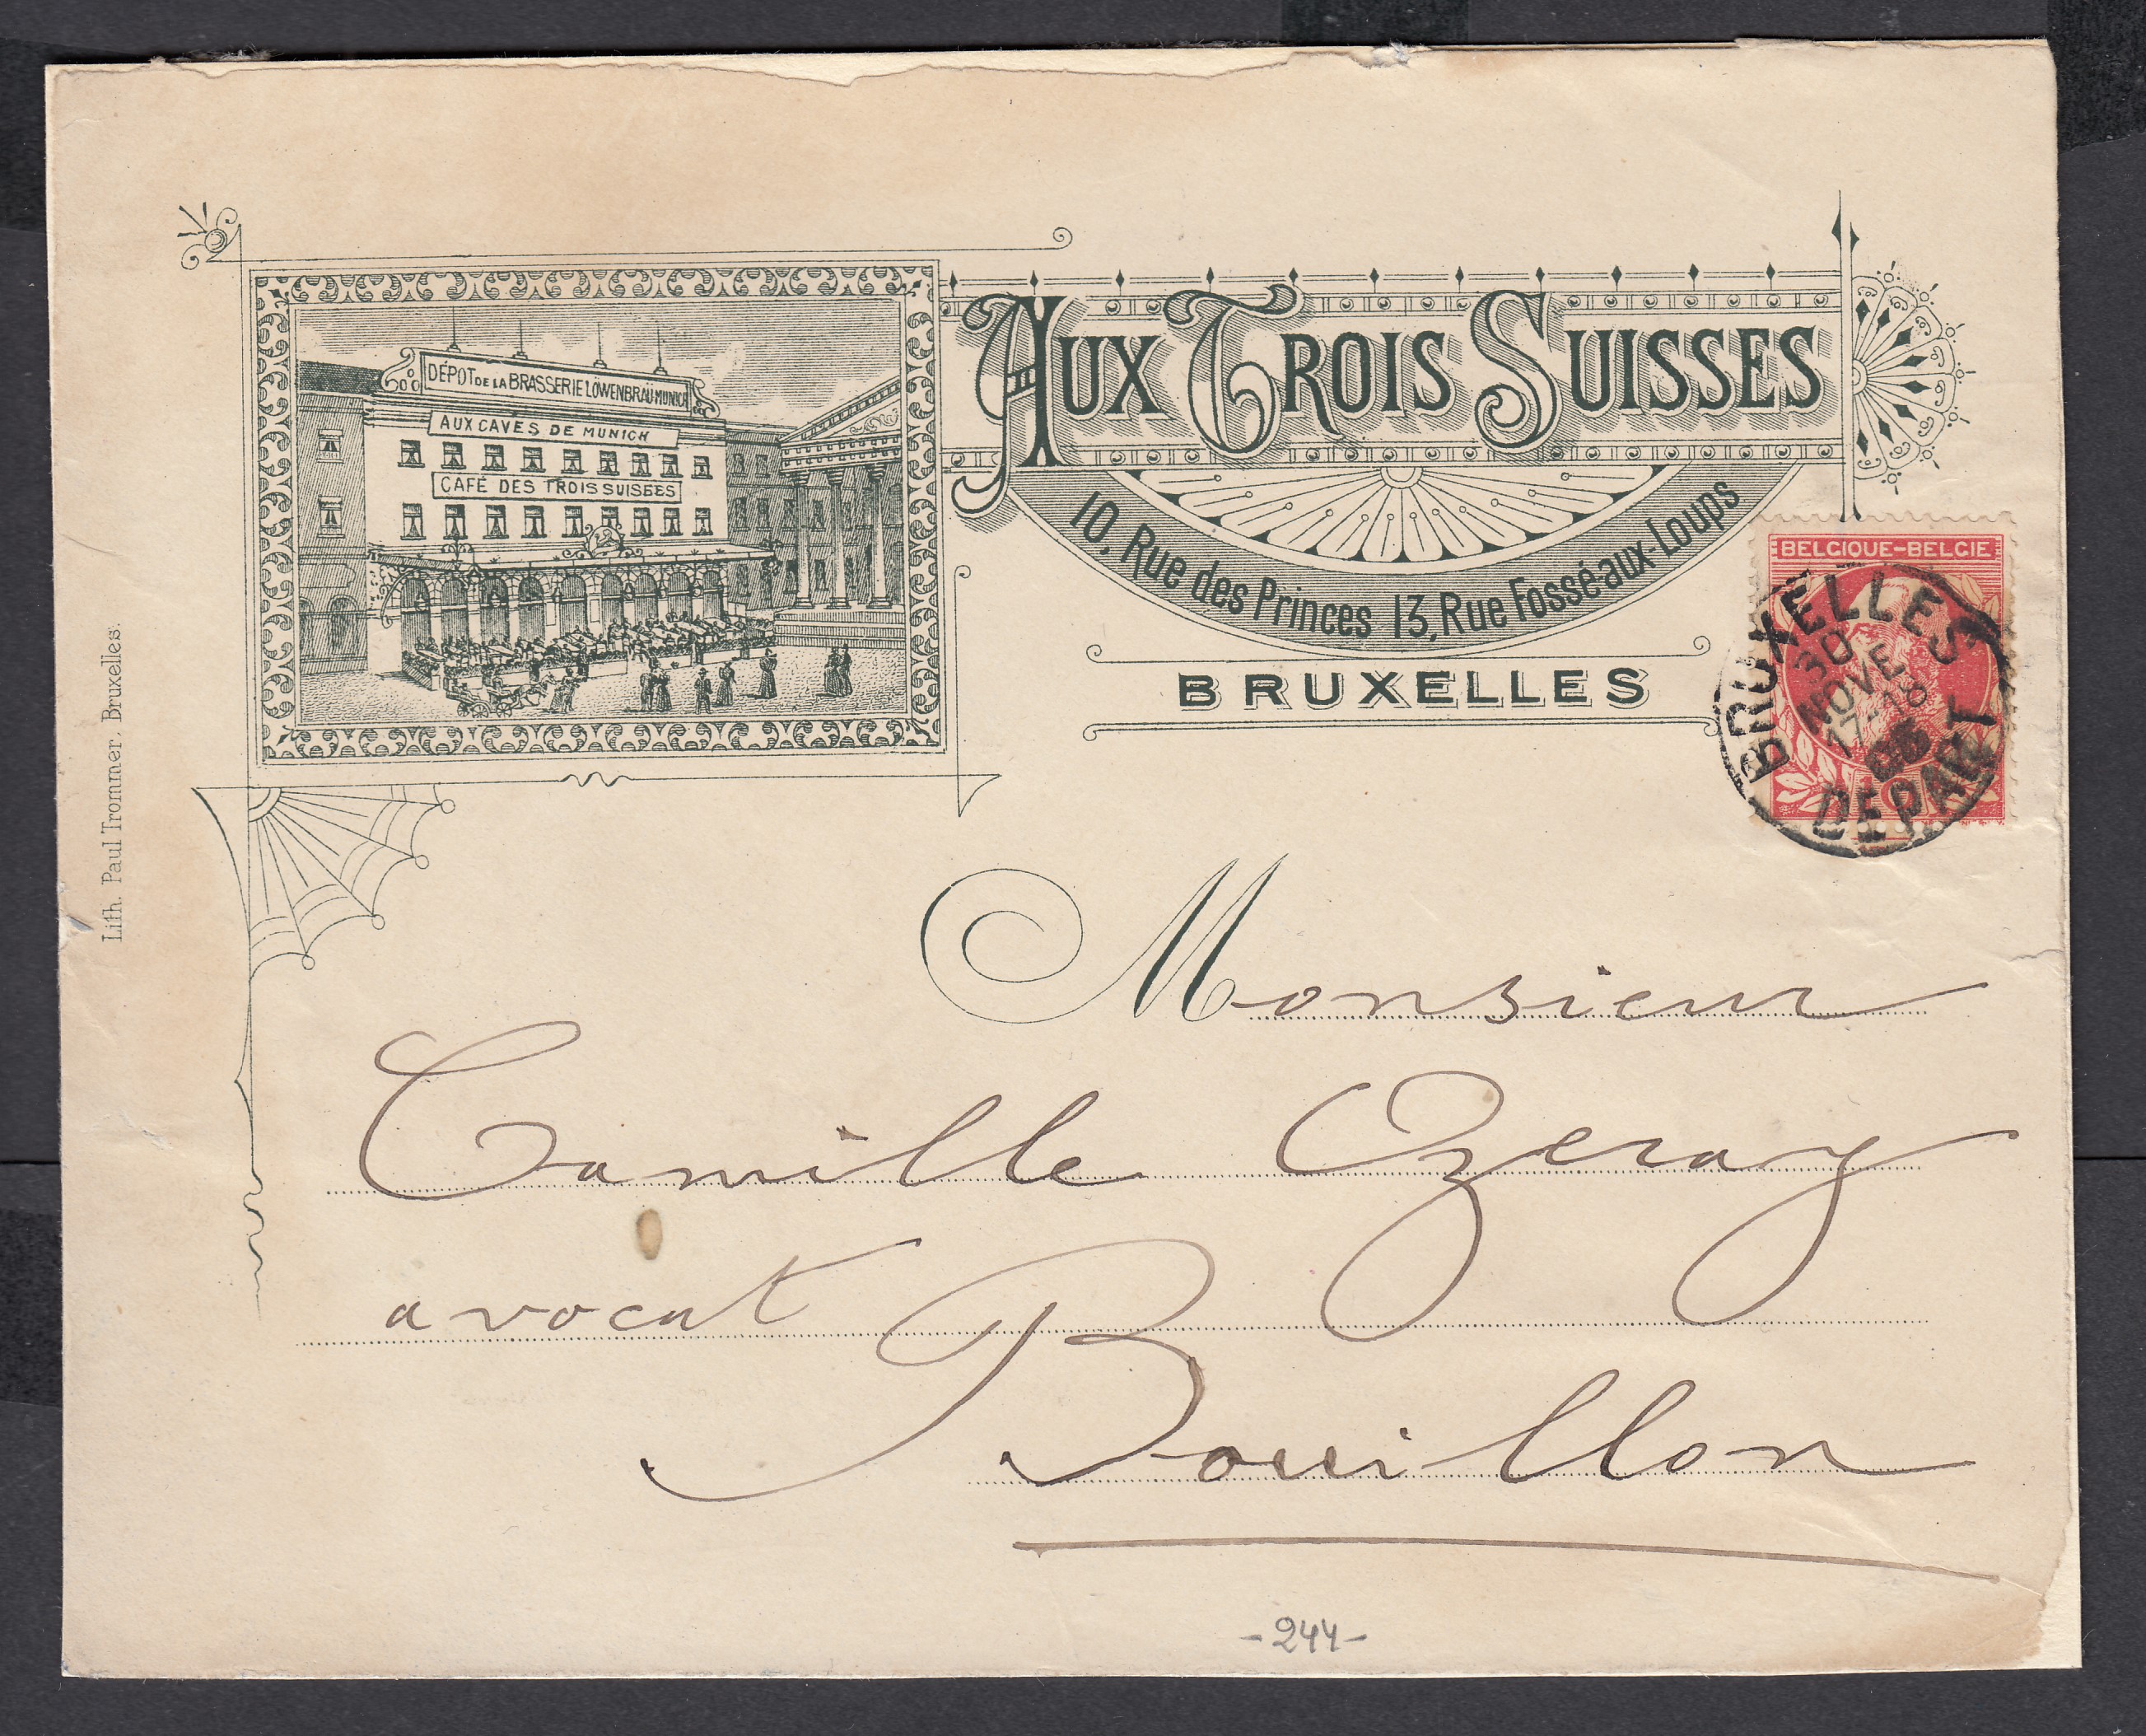 DÉPOT DE LA BRASSERIE LÖWENBRÄU MUNICH
AUX CAVES DE MUNICH
CAFÉ DES TROIS SUISSES
AUX TROIS SUISSES
10, Rue des Princes 13, Rue Fossé-aux-Loups
BRUXELLES
BELGIQUE-BELGIE
BRUXELLES
30
NOVE
17-18
DEPART
10
Lith. Paul Trommer, Bruxelles.
Monsieur
Camille Ozeray
avocat
Bouillon
-244-